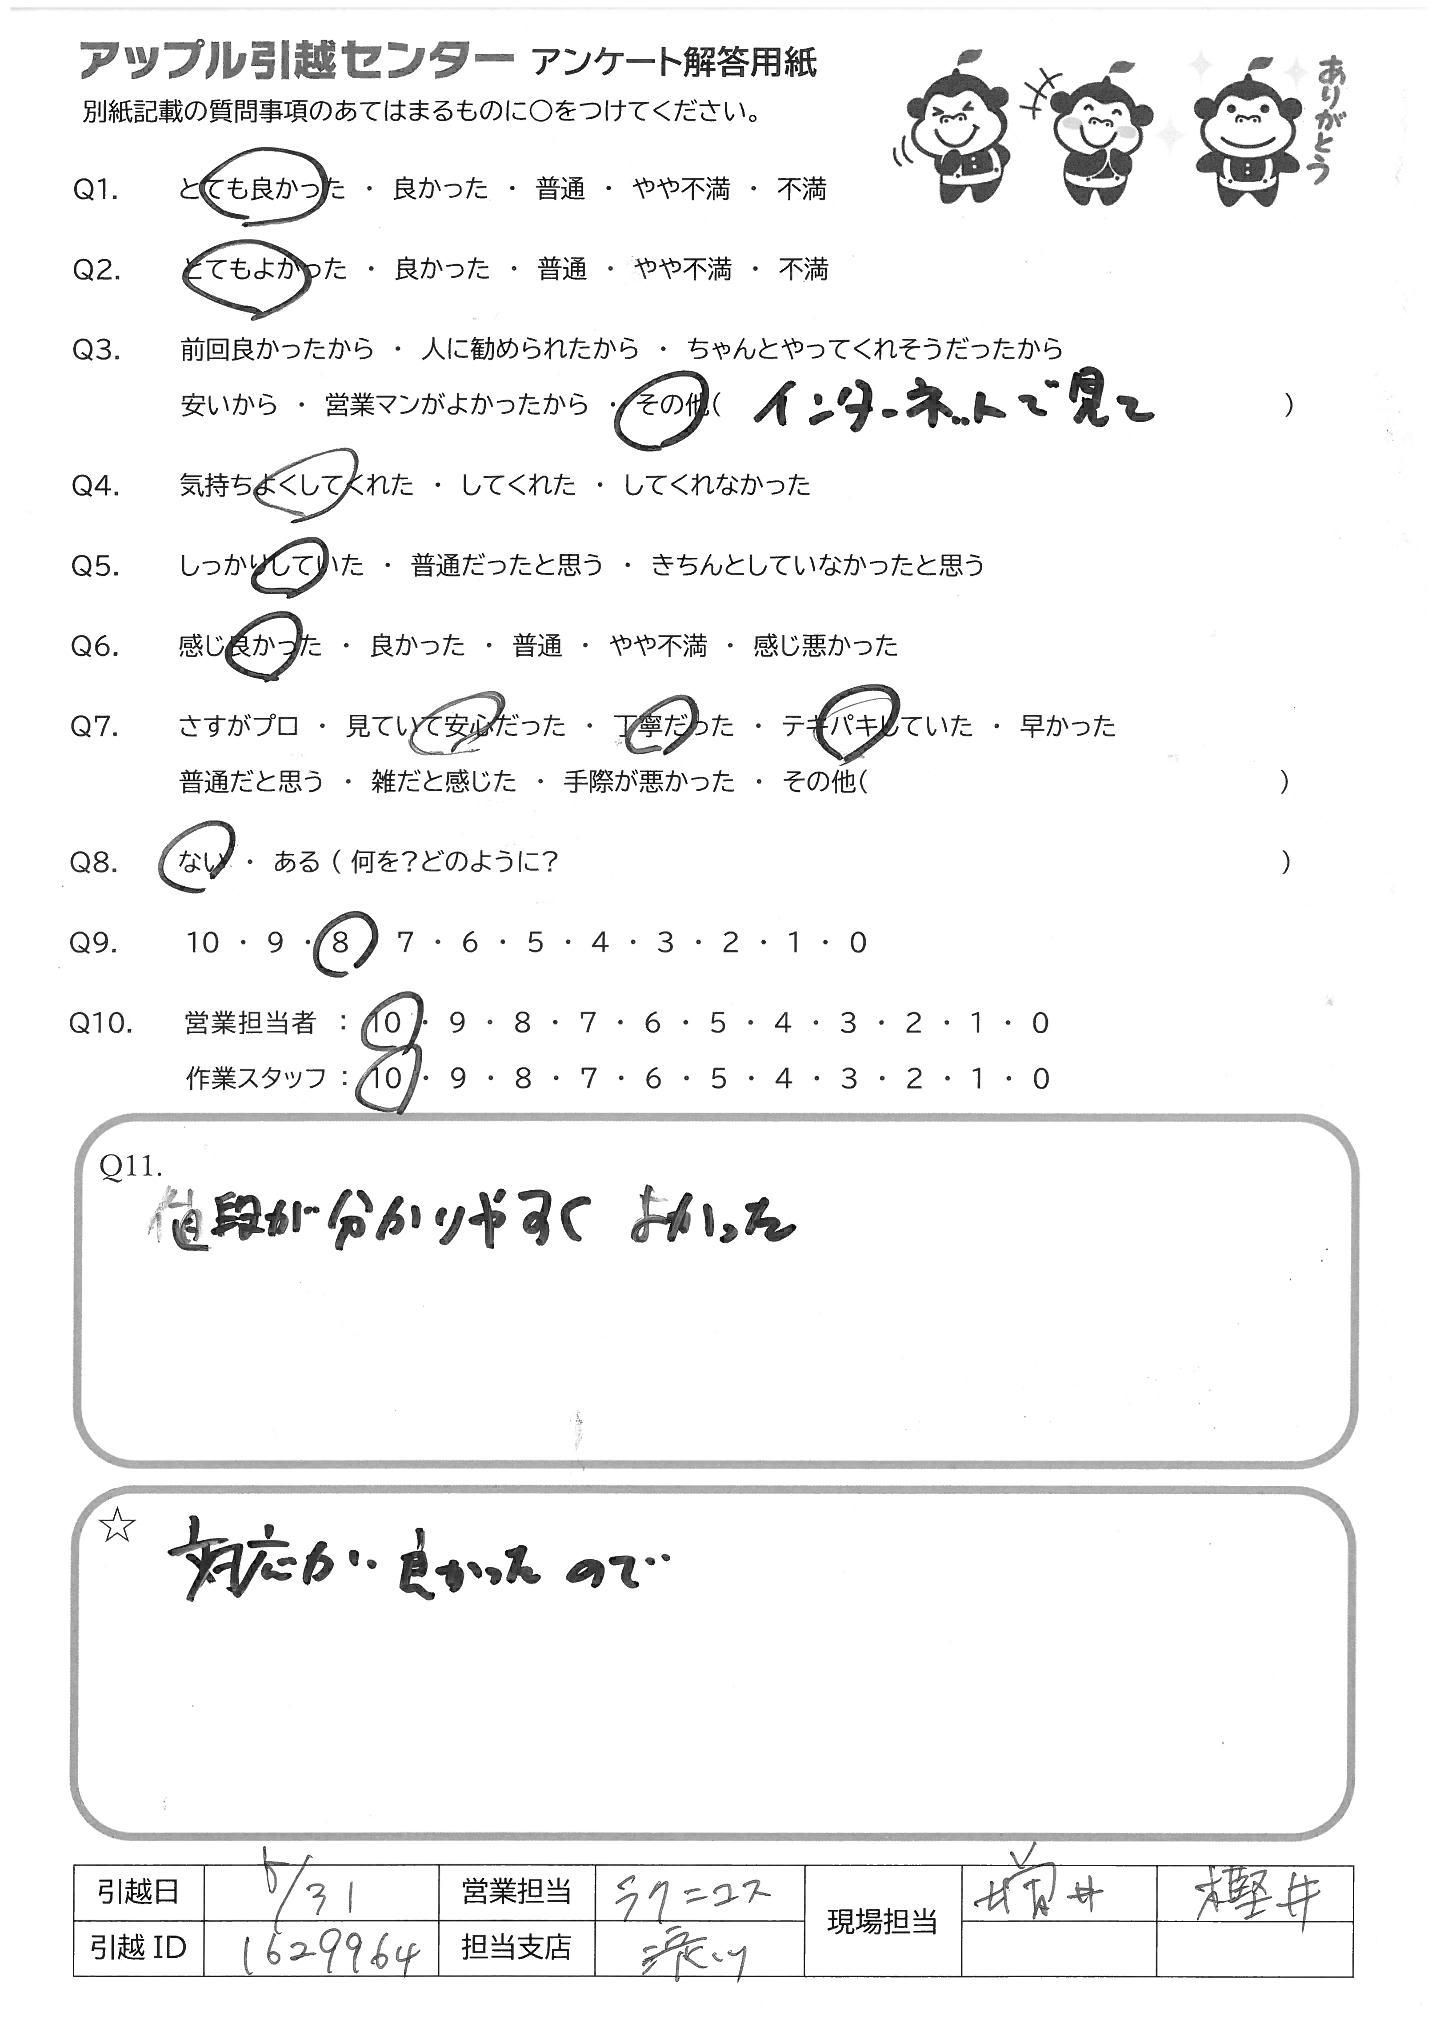 アップル引越センター アンケート解答用紙
ありがとう
別紙記載の質問事項のあてはまるものに○をつけてください。
Q1. とても良かった ・ 良かった ・ 普通 ・ やや不満 ・ 不満
Q2. とてもよかった ・ 良かった ・ 普通 ・ やや不満 ・ 不満
Q3. 前回良かったから ・ 人に勧められたから ・ ちゃんとやってくれそうだったから
安いから ・ 営業マンがよかったから ・ その他( インターネットで見て )
Q4. 気持ちよくしてくれた ・ してくれた ・ してくれなかった
Q5. しっかりしていた ・ 普通だったと思う ・ きちんとしていなかったと思う
Q6. 感じ良かった ・ 良かった ・ 普通 ・ やや不満 ・ 感じ悪かった
Q7. さすがプロ ・ 見ていて安心だった ・ 丁寧だった ・ テキパキしていた ・ 早かった
普通だと思う ・ 雑だと感じた ・ 手際が悪かった ・ その他( )
Q8. ない ・ ある ( 何を?どのように? )
Q9. 10 ・ 9 ・ 8 ・ 7 ・ 6 ・ 5 ・ 4 ・ 3 ・ 2 ・ 1 ・ 0
Q10. 営業担当者 : 10 ・ 9 ・ 8 ・ 7 ・ 6 ・ 5 ・ 4 ・ 3 ・ 2 ・ 1 ・ 0
作業スタッフ : 10 ・ 9 ・ 8 ・ 7 ・ 6 ・ 5 ・ 4 ・ 3 ・ 2 ・ 1 ・ 0
Q11.
値段が分かりやすく よかった
☆
対応が良かったので
引越日 5/31 営業担当 ラクニコス 現場担当 樫井
引越ID 1629964 担当支店